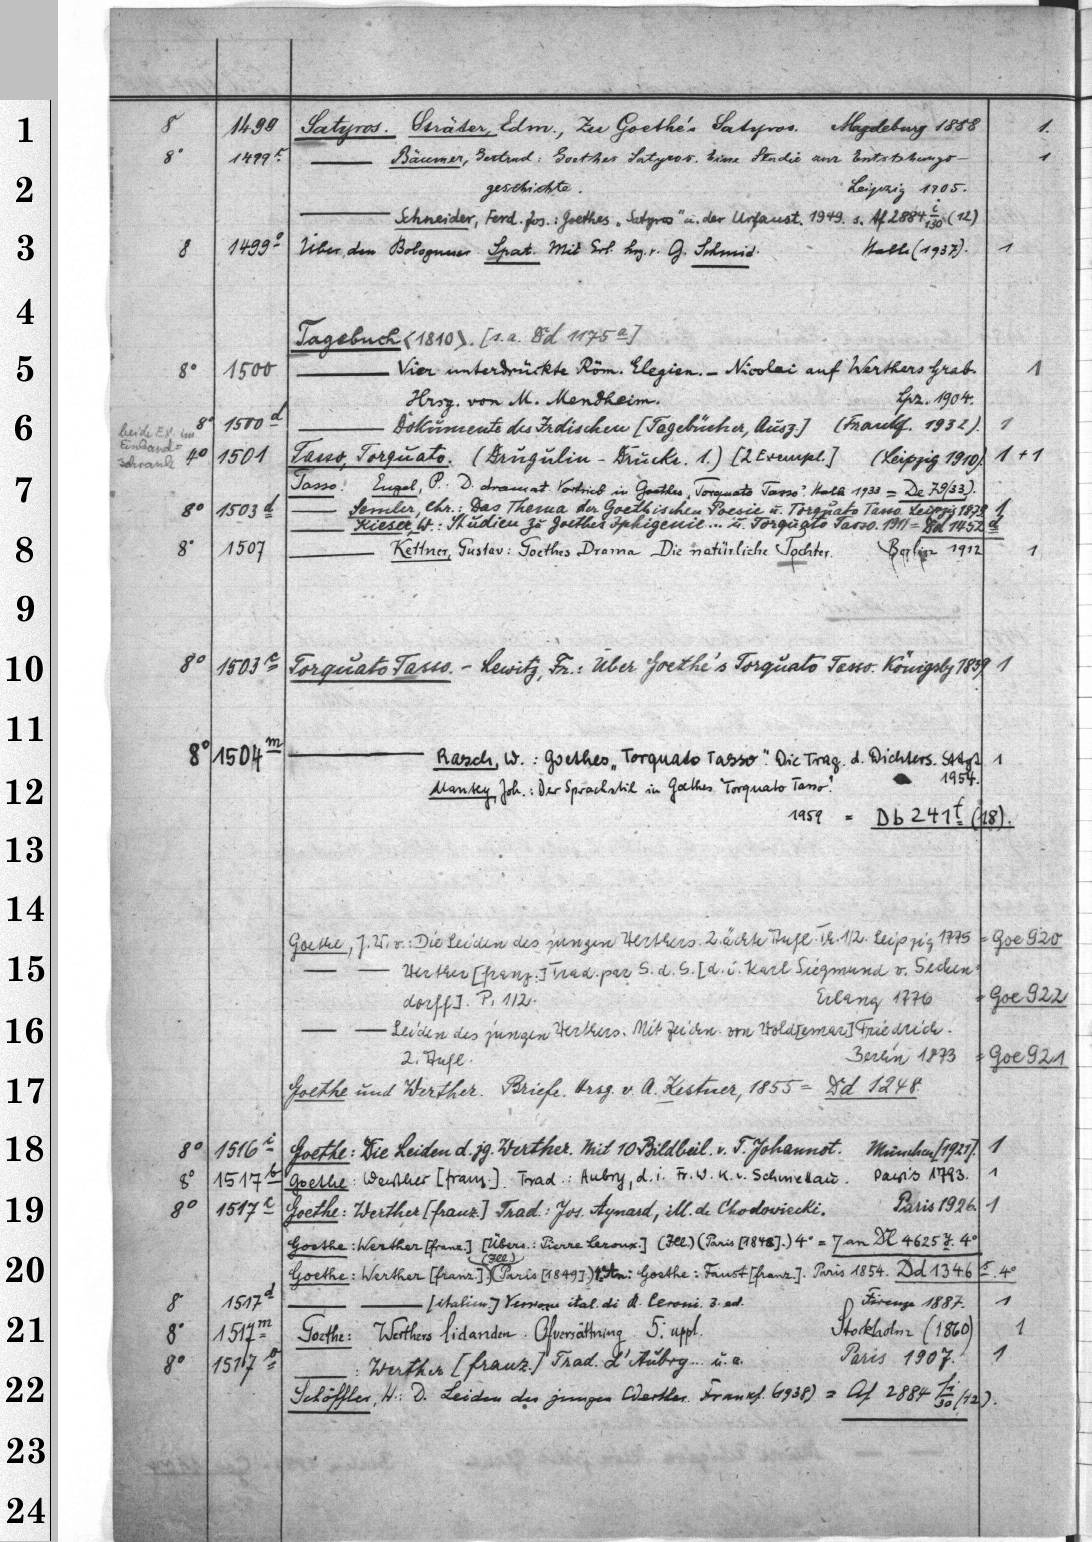 1
8 1499 Satyros. Sträter, Edm., Zu Goethe's Satyros. Magdeburg 1858 1.
8° 1499 Bäumer, Gertrud: Goethes Satyros. Eine Studie zur Entstehungs-
1
2
geschichte. Leipzig 1905.
Schneider, Ferd. Jos.: Goethes „Satyros" u. der Urfaust. 1949. s. Af 2884 i/130 (12)
3
8 1499 Über den Bologneser Spat. Mit Erl. hrg. v. G. Schmid. Halle (1937). 1
4
Tagebuch <1810>. [s.a. Dd 1175 a]
5
8° 1500 Vier unterdrückte Röm. Elegien. – Nicolai auf Werthers Grab. 1
Hrsg. von M. Mendheim. Lpz. 1904.
6
8° 1500 d Dokumente des Irdischen [Tagebücher, Ausz.] (Frankf. 1932). 1
beide Ex. im
Einband=
schrank
4° 1501 Tasso, Torquato. (Drugulin – Drucke. 1.) [2 Exempl.] (Leipzig 1910) 1 + 1
7
Tasso. Engel, P.: D. dramat. Vortrieb in Goethes „Torquato Tasso". Halle 1933 = De 79/33).
8° 1503 d Semler, Chr.: Das Thema der Goethischen Poesie u. Torquato Tasso. Leipzig 1879 1
Kieser, W.: Studien zu Goethes Iphigenie... u. Torquato Tasso. 1911 = Dd 1452 d
8
8° 1507 Kettner, Gustav: Goethes Drama Die natürliche Tochter. Berlin 1912 1
9
10
8° 1503 e Torquato Tasso. – Lewitz, Fr.: Über Goethe's Torquato Tasso. Königsbg 1839 1
11
8° 1504 m Rasch, W.: Goethes „Torquato Tasso". Die Trag. d. Dichters. Stgt 1
1954.
12
Mantey, Joh.: Der Sprachstil in Goethes "Torquato Tasso".
1959 = Db 241 t (18).
13
14
Goethe, J. W. v.: Die Leiden des jungen Werthers. 2. ächte Aufl. Th. 1/2. Leipzig 1775 = Goe 920
15
Werther [franz.] Trad. par S. d. S. [d. i. Karl Siegmund v. Secken=
dorff]. P. 1/2. Erlang 1776 = Goe 922
16
Leiden des jungen Werthers. Mit Zeichn. von Wold[emar] Friedrich.
2. Aufl. Berlin 1873 = Goe 921
17
Goethe und Werther. Briefe. Hrsg. v. A. Kestner, 1855 = Dd 1248
18
8° 1516 i Goethe: Die Leiden d. jg. Werther. Mit 10 Bildbeil. v. T. Johannot. München [1921]. 1
8° 1517 b Goethe: Werther [franz.]. Trad.: Aubry, d. i. Fr. W. K. v. Schmettau. Paris 1793. 1
19
8° 1517 c Goethe: Werther [franz.] Trad.: Jos. Aynard, ill. de Chodowiecki. Paris 1926. 1
Goethe: Werther [franz.] [Übers.: Pierre Leroux.] (Ill.) (Paris [1848].) 4° = 7 an Dl 4625 y. 4°
20
(Ill.)
Goethe: Werther [franz.]. (Paris [1849].) Goethe: Faust [franz.]. Paris 1854. Dd 1346 e. 4°
8 1517 d [italien.] Versione ital. di R. Ceroni. 3. ed. Firenze 1887. 1
21
8° 1517 m Goethe: Werthers lidanden. Öfversättning. 5. uppl. Stockholm (1860) 1
8° 1517 o : Werther [franz.] Trad. d'Aubry... u. a. Paris 1907. 1
22
Schöffler, H.: D. Leiden des jungen Werther. Frankf. (1938) = Af 2884 li/30 (12).
23
24